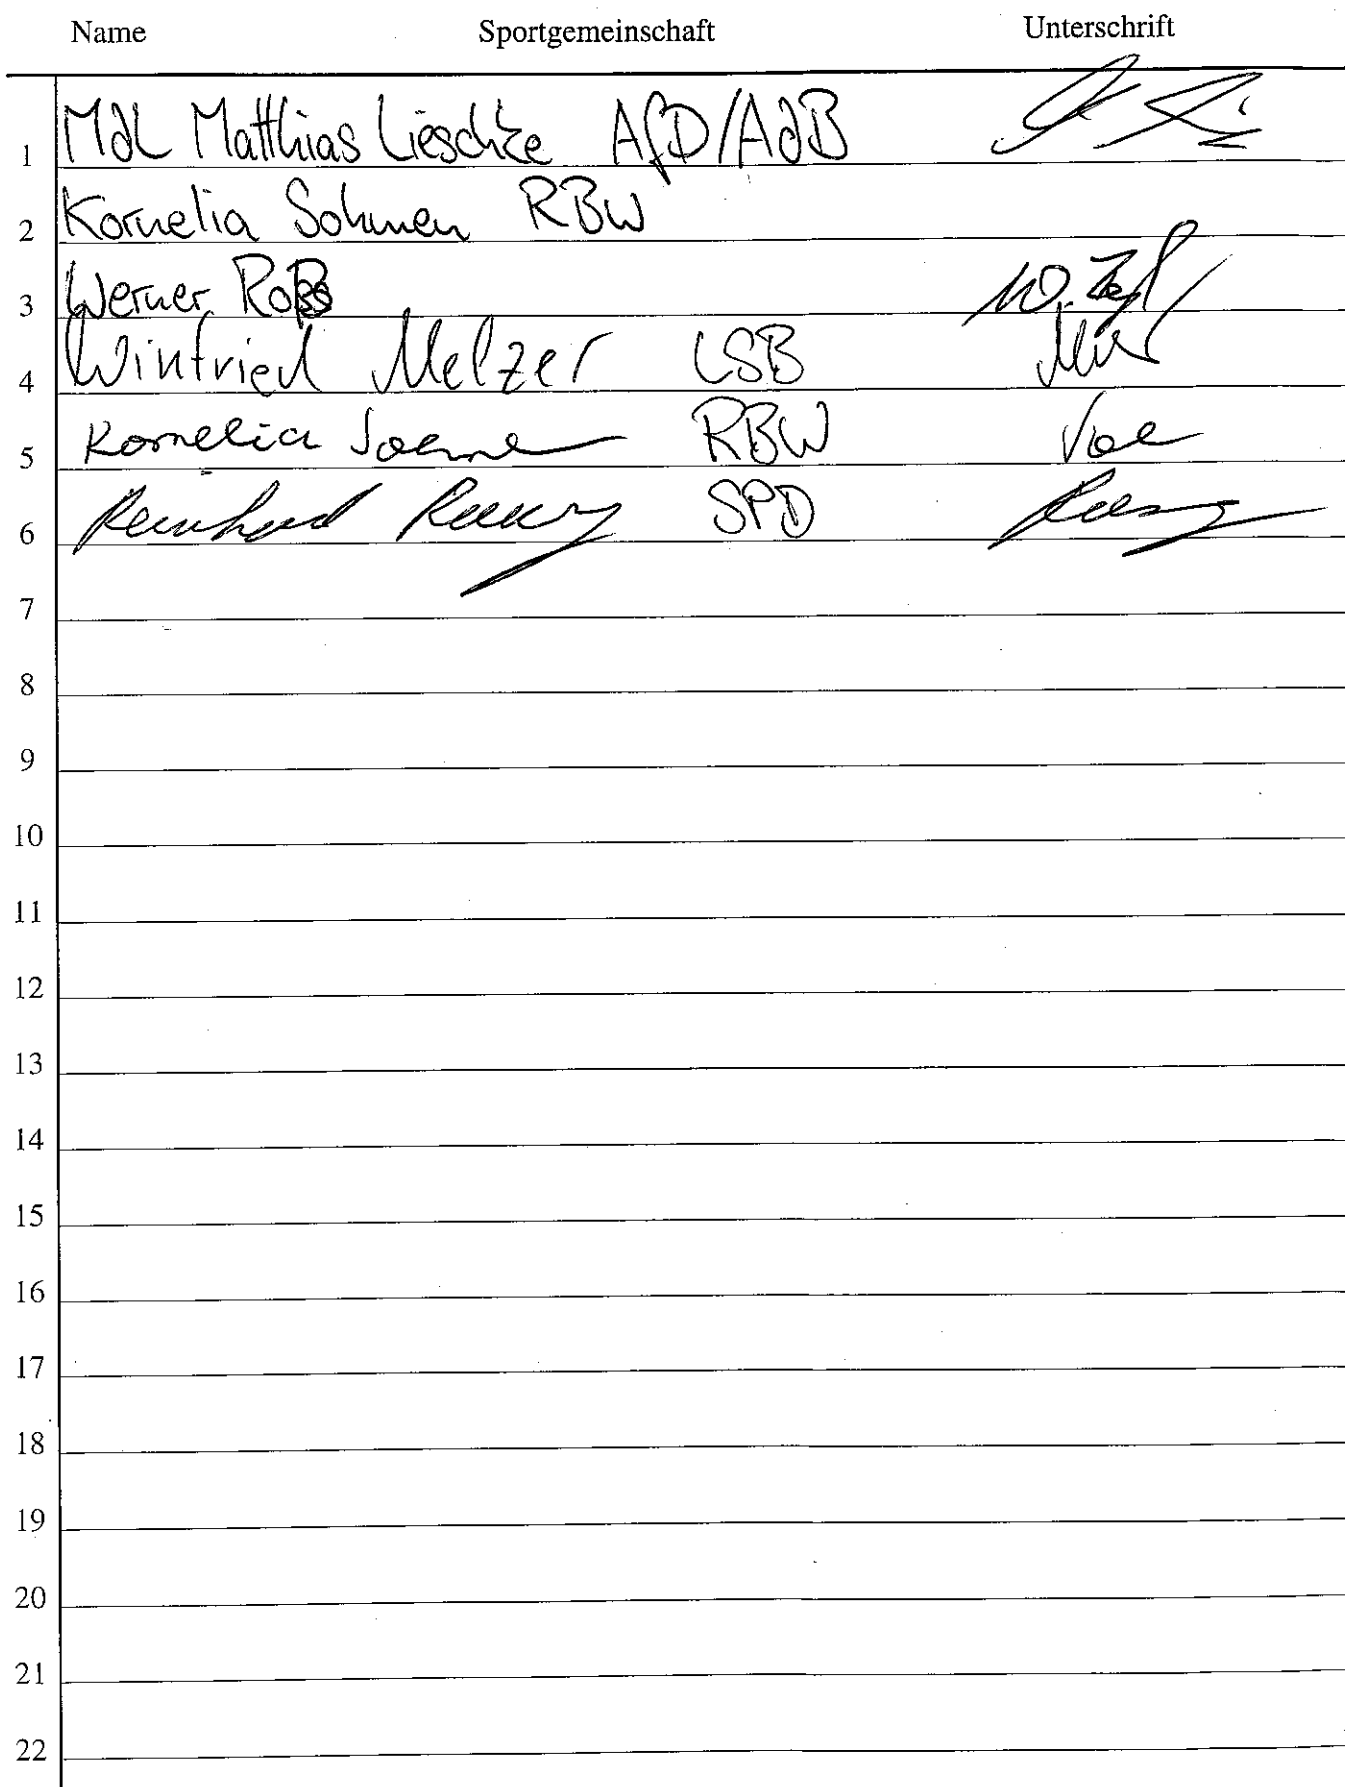 Name Sportgemeinschaft Unterschrift
1 MdL Matthias Lieschke AfD/AdB
2 Kornelia Sohmen RBW
3 Werner
4 Winfried Melzer LSB
5 Kornelia RBW
6 Reinhard SPD
7
8
9
10
11
12
13
14
15
16
17
18
19
20
21
22